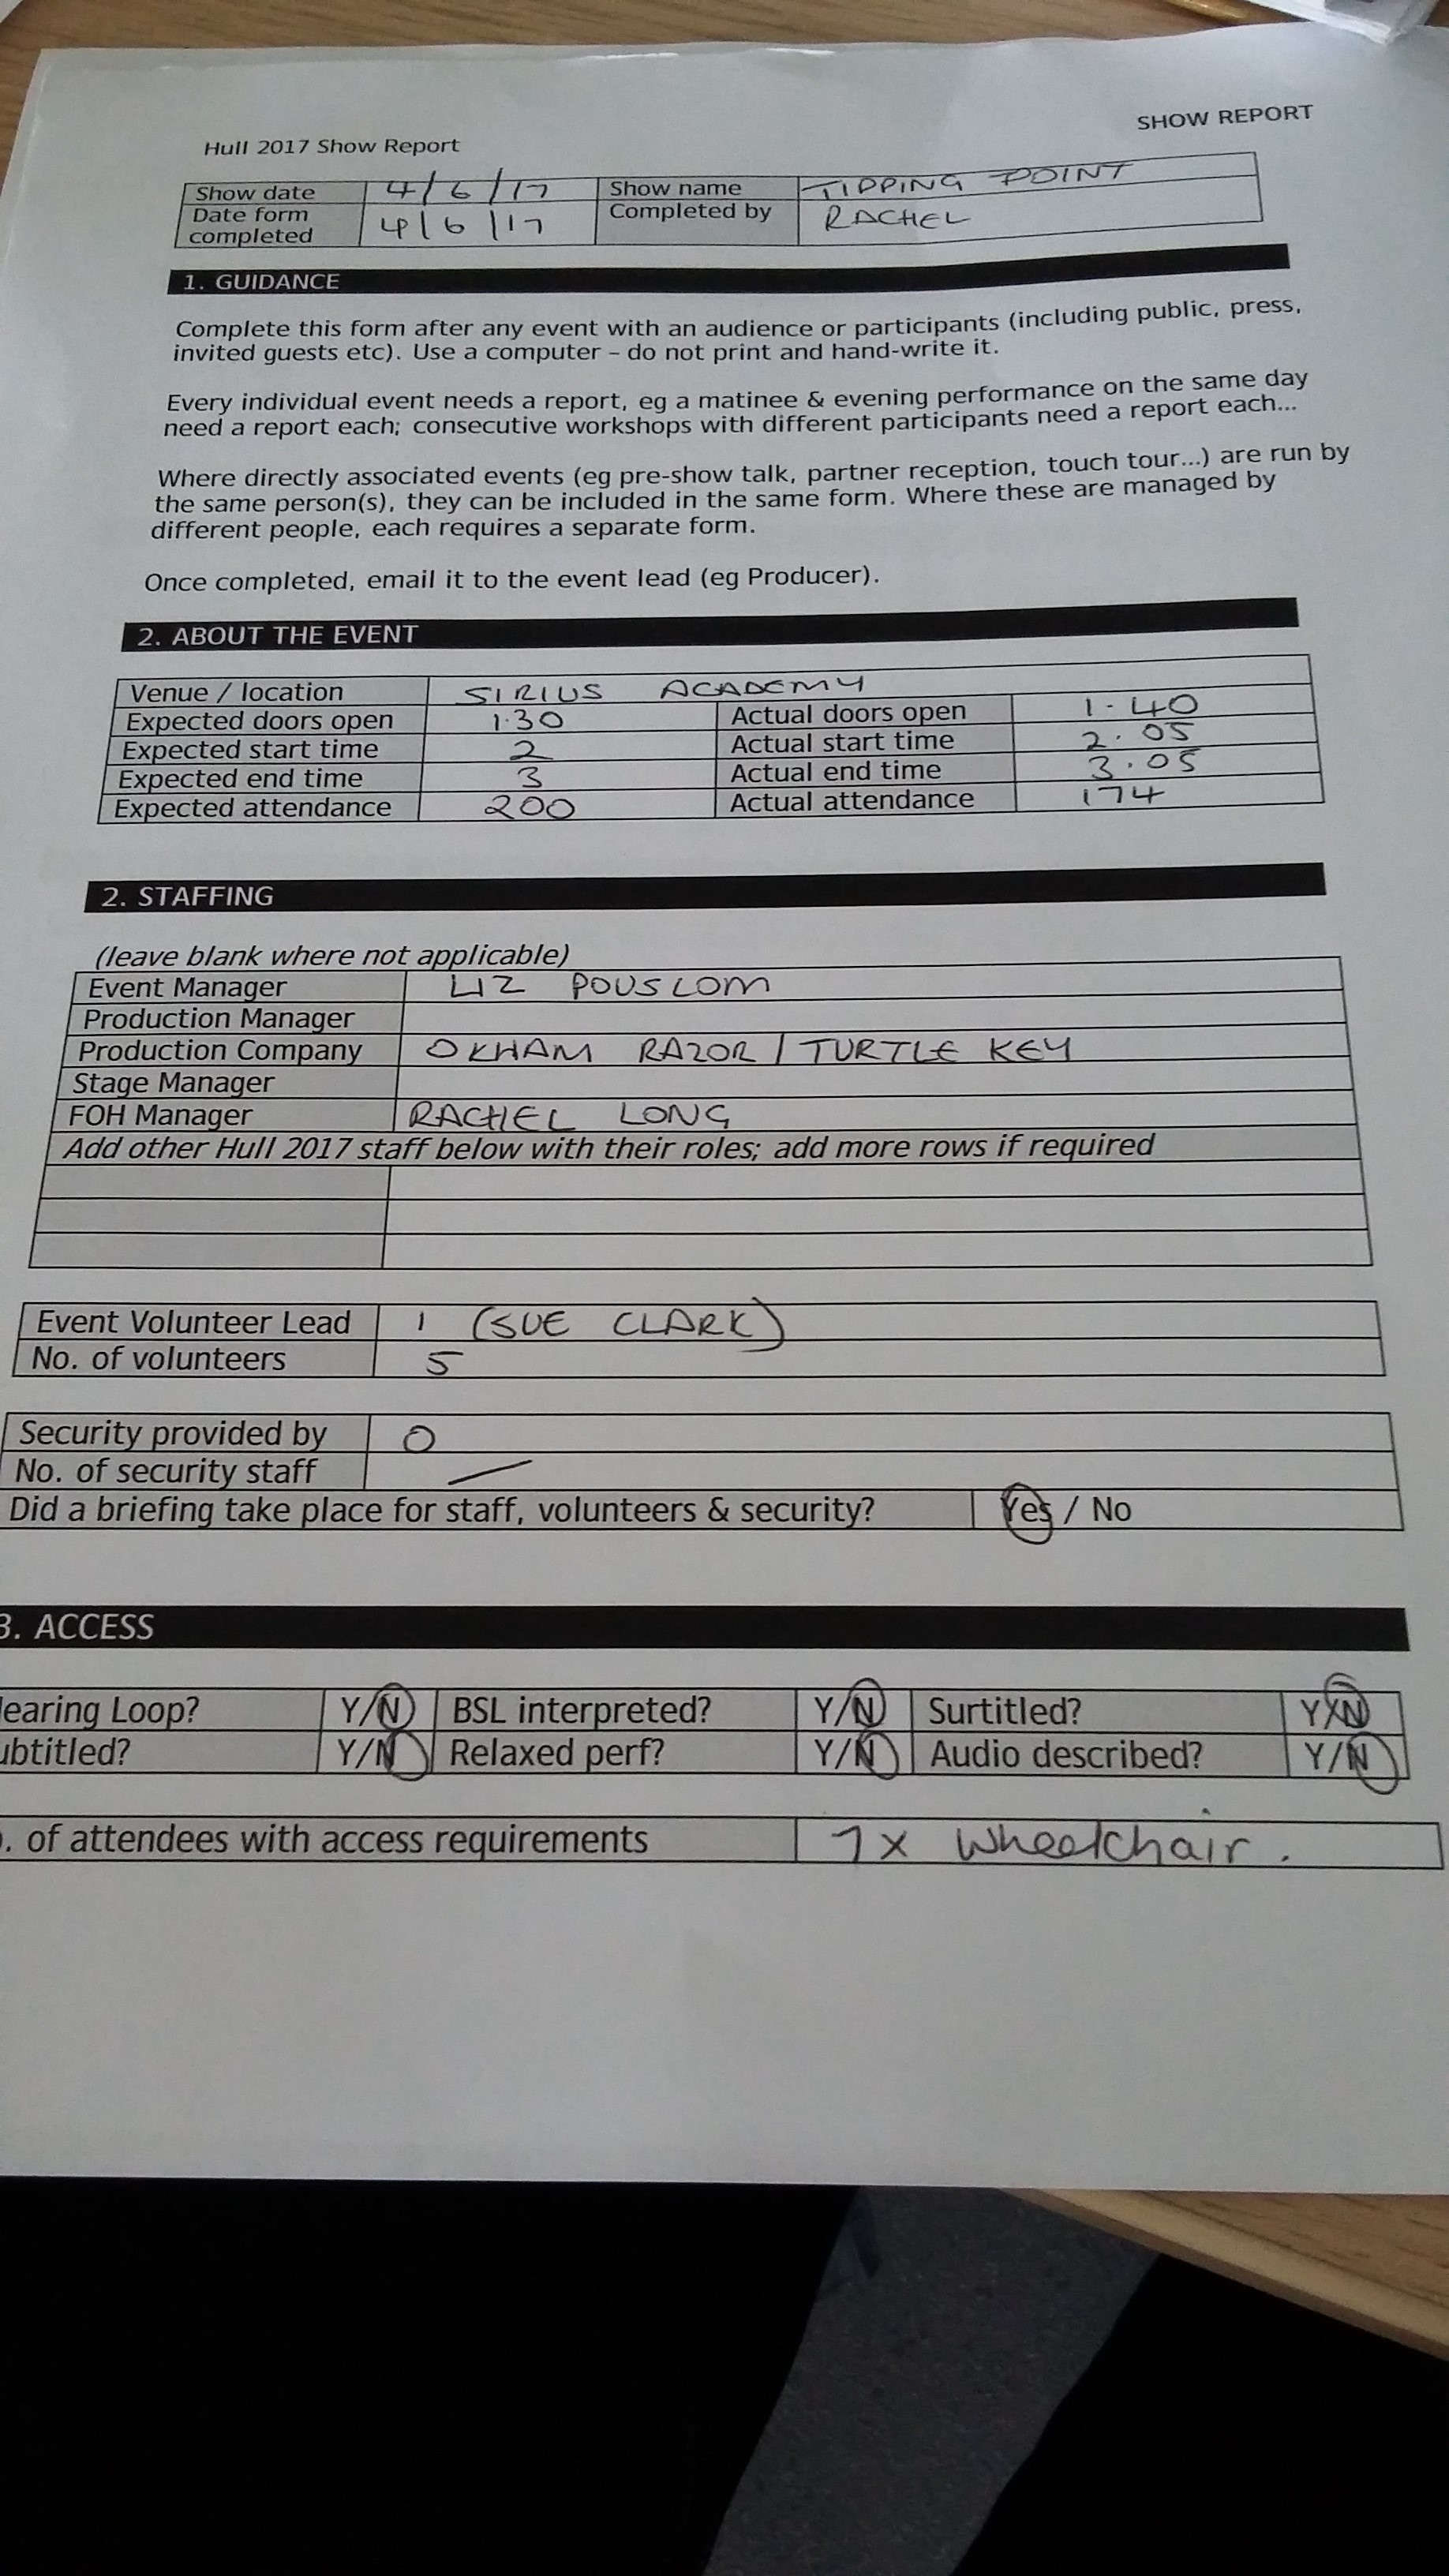 SHOW REPORT
Hull 2017 Show Report
Show date 4/6/17 Show name TIPPING POINT
Date form completed 4/6/17 Completed by RACHEL
1. GUIDANCE
Complete this form after any event with an audience or participants (including public, press,
invited guests etc). Use a computer – do not print and hand-write it.
Every individual event needs a report, eg a matinee & evening performance on the same day
need a report each; consecutive workshops with different participants need a report each...
Where directly associated events (eg pre-show talk, partner reception, touch tour...) are run by
the same person(s), they can be included in the same form. Where these are managed by
different people, each requires a separate form.
Once completed, email it to the event lead (eg Producer).
2. ABOUT THE EVENT
Venue / location SIRIUS ACADEMY
Expected doors open 1.30 Actual doors open 1.40
Expected start time 2 Actual start time 2.05
Expected end time 3 Actual end time 3.05
Expected attendance 200 Actual attendance 174
2. STAFFING
(leave blank where not applicable)
Event Manager LIZ POUSLOM
Production Manager
Production Company OKHAM RAZOR / TURTLE KEY
Stage Manager
FOH Manager RACHEL LONG
Add other Hull 2017 staff below with their roles; add more rows if required
Event Volunteer Lead 1 (SUE CLARK)
No. of volunteers 5
Security provided by 0
No. of security staff —
Did a briefing take place for staff, volunteers & security? Yes / No
3. ACCESS
earing Loop? Y/N BSL interpreted? Y/N Surtitled? Y/N
ubtitled? Y/N Relaxed perf? Y/N Audio described? Y/N
. of attendees with access requirements 1x wheelchair.